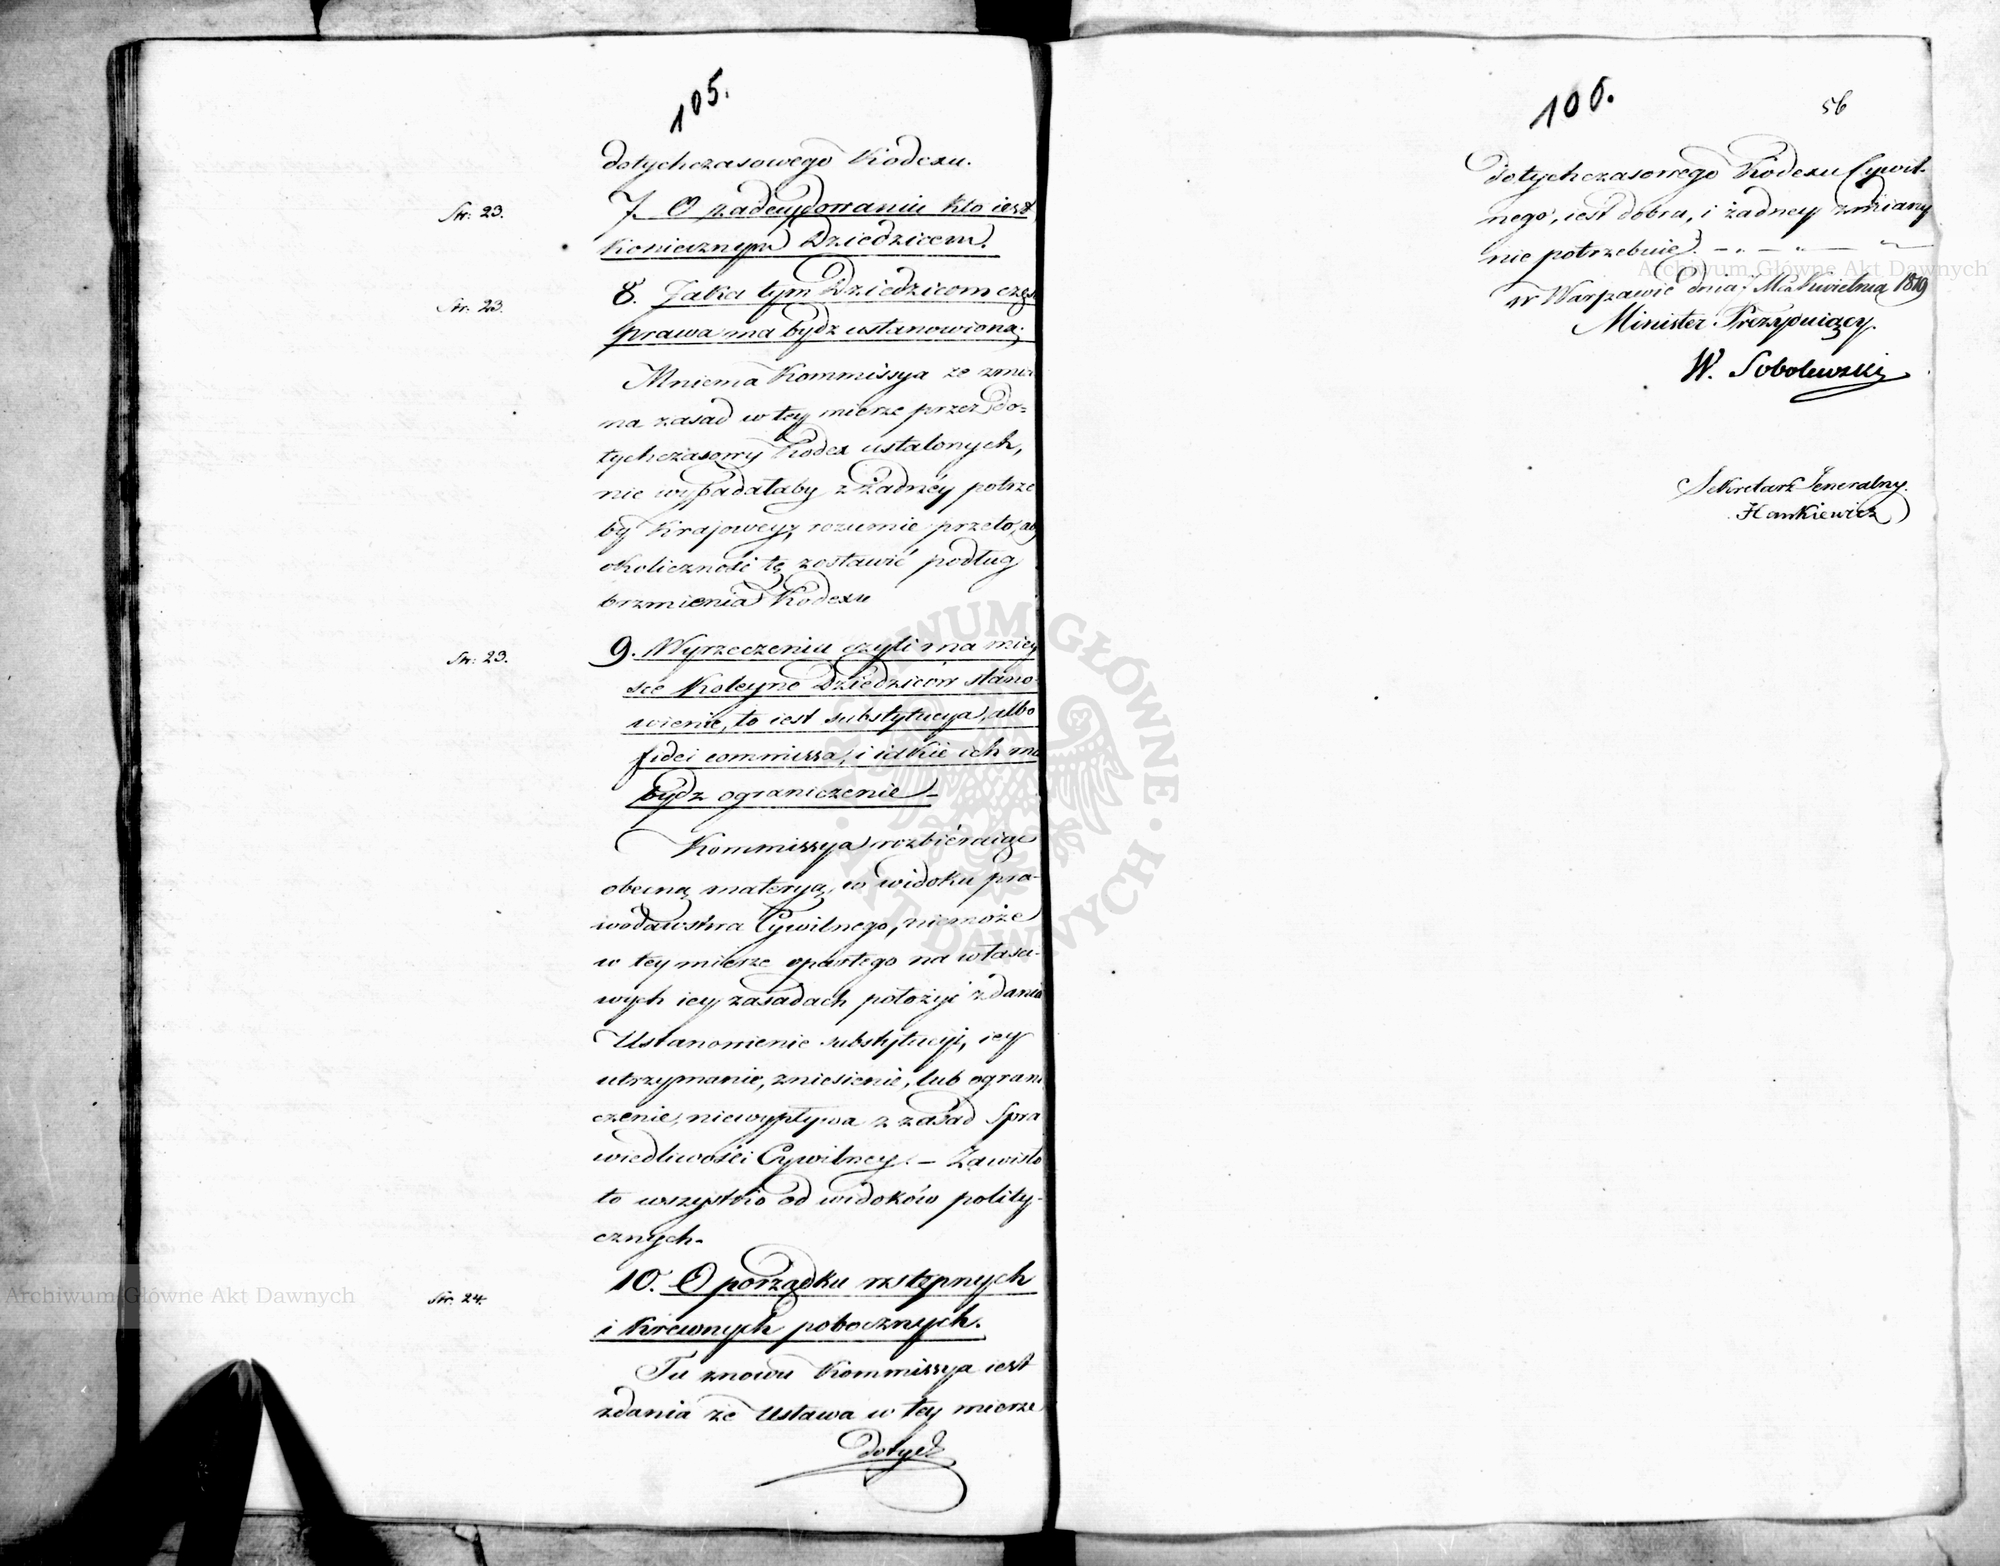 105.
dotychczasowego Kodexu.
Str: 23.
7. O zadecydowaniu kto iest
koniecznym Dziedzicem.
Str: 23.
8. Jaka tym Dziedzicom częs
prawa ma bydz ustanowiona.
Mniema Kommissya że zmia
na zasad w tey mierze przez do=
tychczasowy Kodex ustalonych,
nie wypadałaby z żadnéy potrze
by Krajowey, rozumie przeto, aby
okoliczność tę zostawić podług
brzmienia Kodexu
Str: 23.
9. Wyrzeczeniu czyli ma miey
sce koleyne Dziedziców stano
wienie, to iest substytucya, albo
fidei commissa, i iakie ich ma
bydz ograniczenie –
Kommissya rozbieraiąc
obecną materyą, w widoku pra-
wodawstwa Cywilnego, niemoże
w tey mierze opartego na właści-
wych iey zasadach położyć zdania
Ustanowienie substytucyi, iey
utrzymanie, zniesienie, lub ograni
czenie, niewypływa z zasad Spra
wiedliwości Cywilney. – Zawisło
to wszystko od widoków polity-
cznych.
Str: 24.
10. O porządku wstępnych
i krewnych pobocznych.
Tu znowu Kommissya iest
zdania że Ustawa w tey mierze
dotych
106.
56
dotychczasowego Kodexu Cywil-
nego, iest dobra, i żadney zmiany
nie potrzebuie.
w Warszawie dnia 7 Mca Kwietnia 1819
Minister Prezyduiący.
W. Sobolewski
Sekretarz Jeneralny.
Hankiewicz
Archiwum Główne Akt Dawnych
Archiwum Główne Akt Dawnych
ARCHIWUM GŁÓWNE AKT DAWNYCH